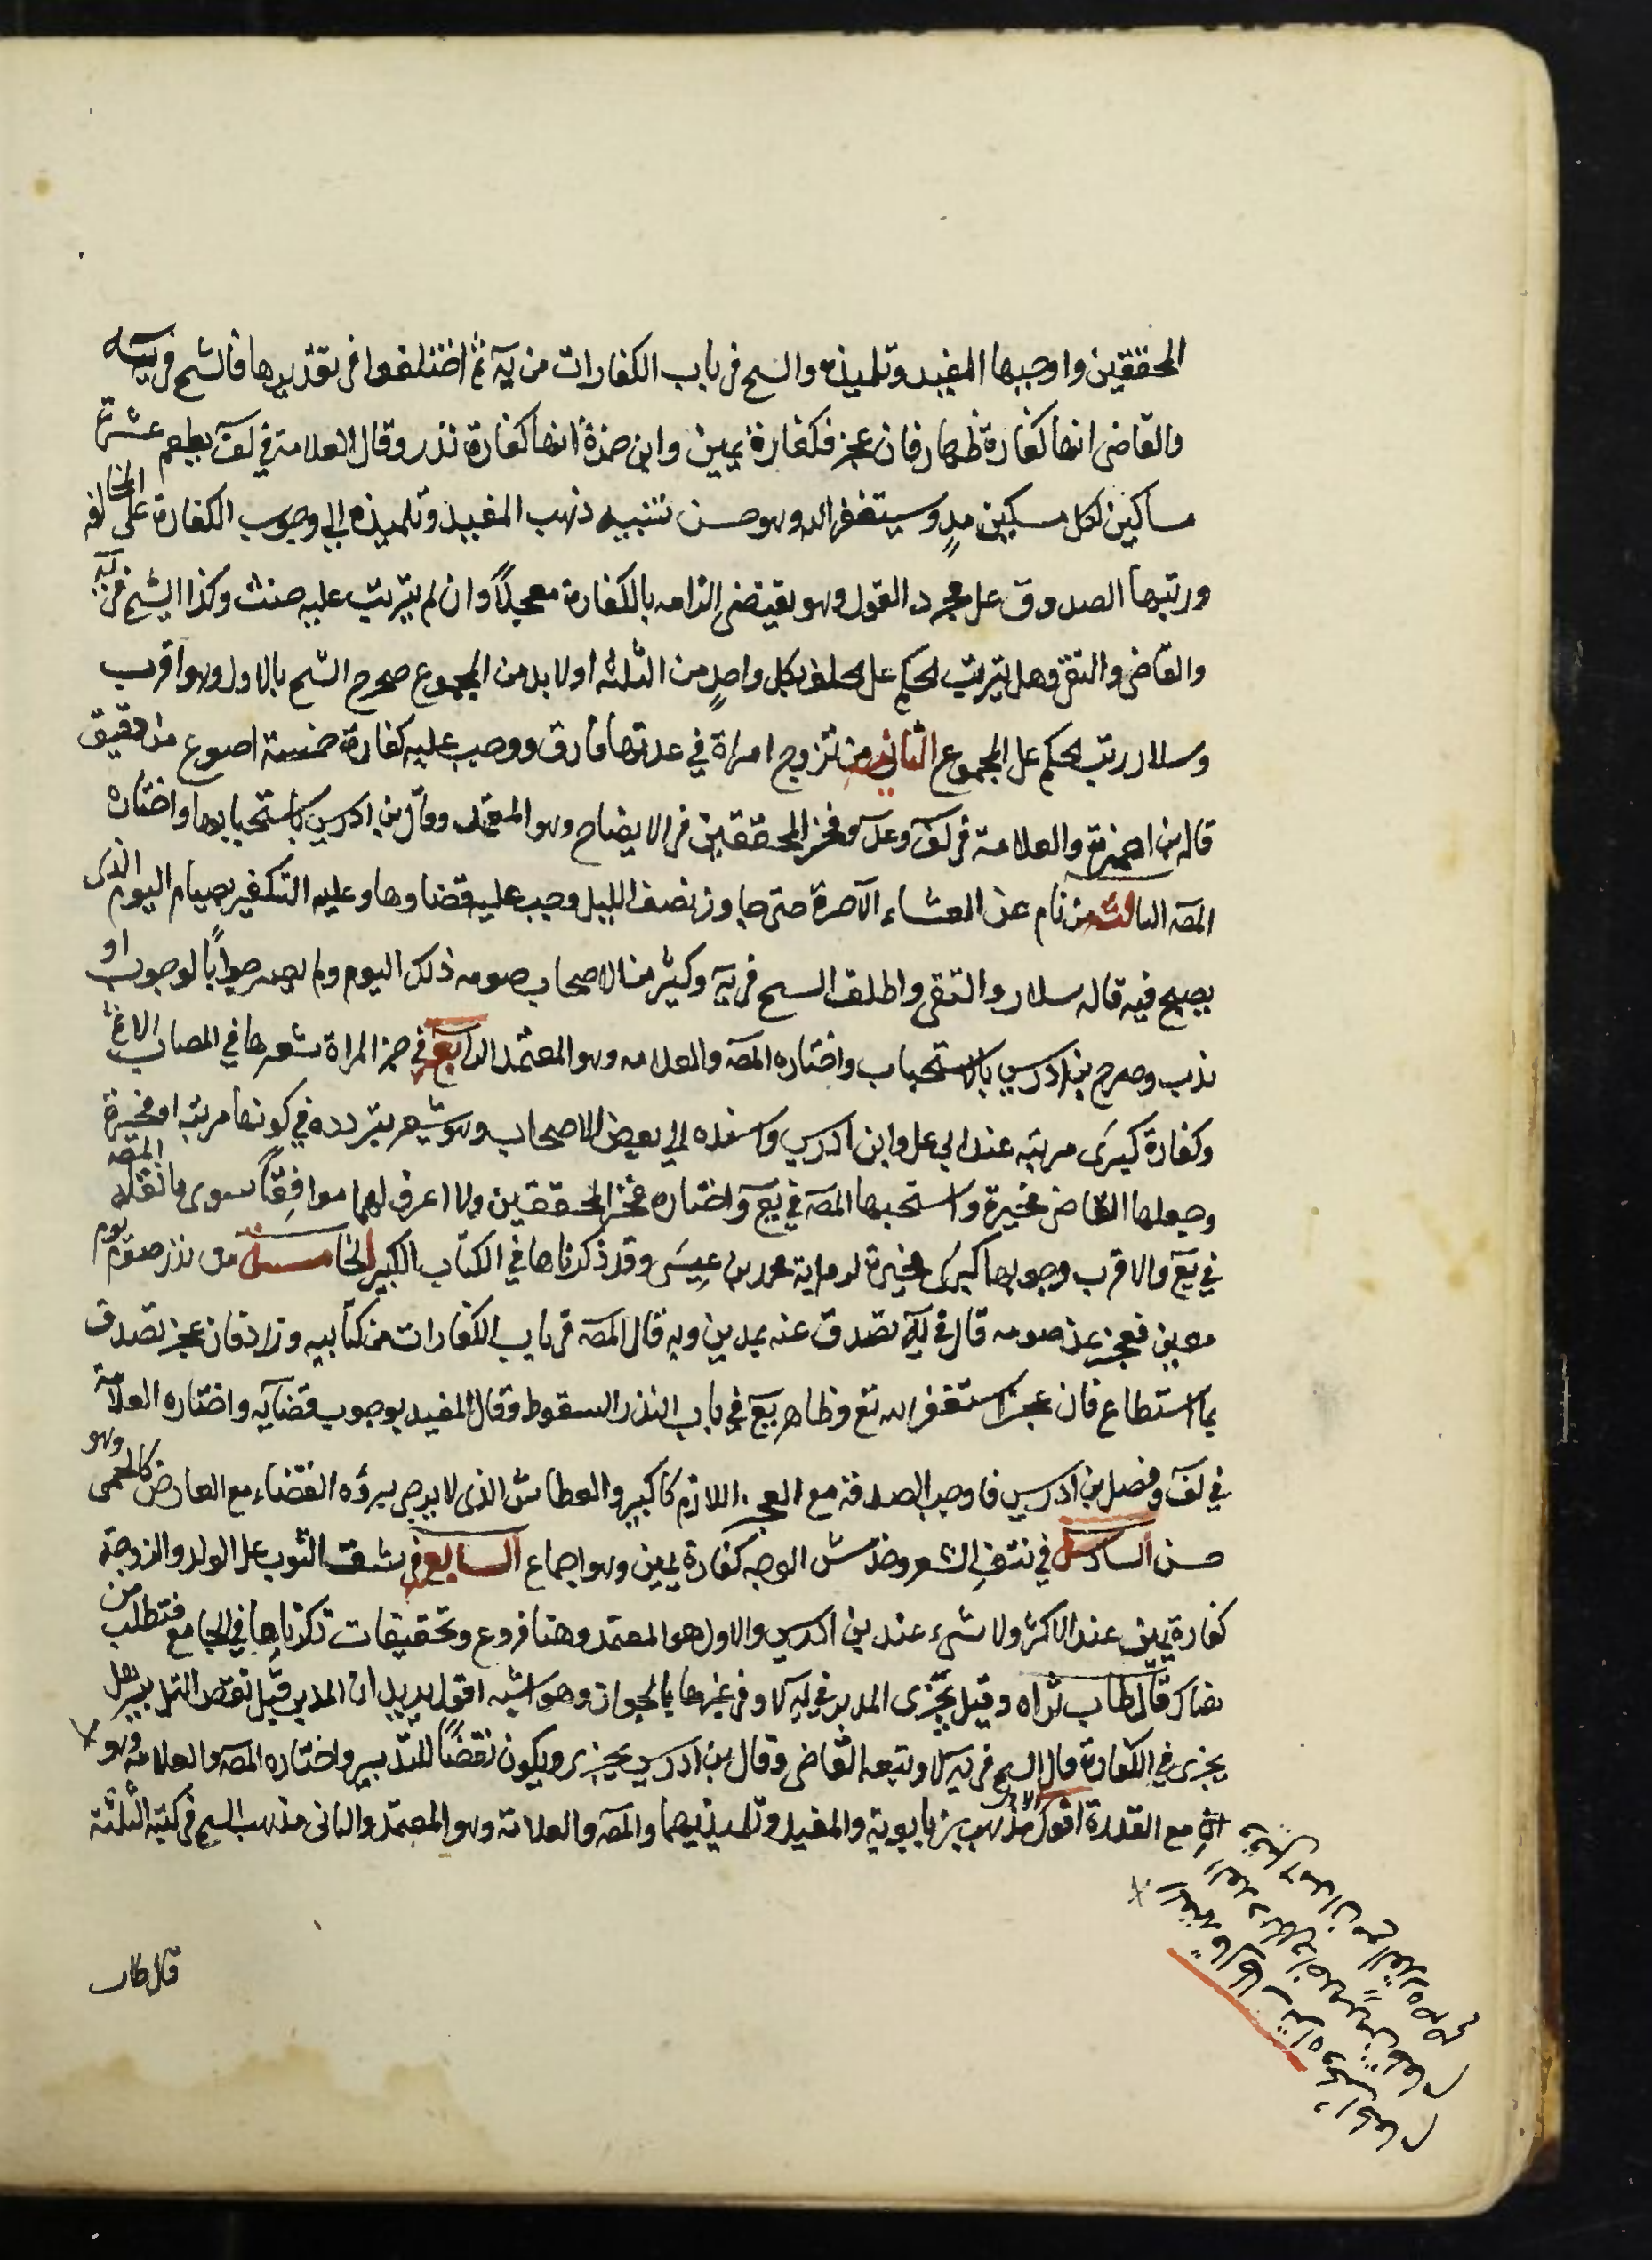 المحققين واوجبها المفيد وتلميذه والشيخ في باب الكفارات من يه ثم اختلفوا في تقديرها فالشيخ في يته
والقاضي انها كفارة ظهار فان عجز فكفارة يمين وابن حمزة انها كفارة نذر وقال العلامة في لف يطعم عشرة
مساكين لكل مسكين مدٍ ويستغفر الله وهو حسن تنبيه ذهب المفيد وتلميذه الى وجوب الكفارة على المخالفه
ورتبها الصدوق على مجرد القول وهو يقتضي الزامه بالكفارة معجلاً وان لم يترتب عليه حنث وكذا الشيخ في يه
والقاضي والتقي وهل يترتب الحكم على الحلف بكل واحدٍ من الثلثه او لا بد من المجموع صرح الشيخ بالاول وهو اقرب
وسلار رتب الحكم على المجموع الثاني من تزوج امراة في عدتها فارق ووجب عليه كفارة خمسة اصوع من دقيق
قاله بن حمزة والعلامة في لف وعد وفخر المحققين في الايضاح وهو المعتمد وقال بن ادريس باستحبابها واختاره
المصه الثالث من نام عن العشاء الآخرة حتى جاوز نصف الليل وجب عليه قضاوها وعليه التكفير بصيام اليوم الذى
يصبح فيه قاله سلار والتقى واطلق الشيخ في يه وكثير من الاصحاب صومه ذلك اليوم ولم يصرحوا بالوجوب او
ندب وصرح بن ادريس بالاستحباب واختاره المصه والعلامه وهو المعتمد الرابع في جز المراة شعرها في المصاب الاثم
وكفارة كبرى مرتبه عند ابي على وابن ادريس واسنده الى بعض الاصحاب وهو يشعر بتردده في كونها مرتبه او مخيرة
وجعلها القاضي مخيرة واستحبها المصه في يع واختاره فخر المحققين ولا اعرف لهما موافقاً سوى ما نقله المصه
في يع والاقرب وجوبها كبرى مخيرة لرواية محمد بن عيسى وقد ذكرناها في الكتاب الكبير الخامس من نذر صوم يوم
معين فعجز عن صومه قال في يه تصدق عنه بمدين وبه قال المصه في باب الكفارات من كتابيه وزاد فان عجز تصدق
بما استطاع فان عجز استغفر الله تع وظاهر يع في باب النذر السقوط وقال المفيد بوجوب قضائه واختاره العلامة
في لف وفصل بن ادريس فاوجب الصدقة مع العجز اللازم كالكبير والعطاش الذى لا يرجى برؤه القضاء مع العارض كالحمى وهو
حسن السادس في نتف الشعر وخدش الوجه كفارة يمين وهو اجماع السابع في شق الثوب على الولد والزوجة
كفارة يمين عند الاكثر ولا شيء عند بن ادريس والاول هو المعتمد وهنا فروع وتحقيقات ذكرناها في الجامع فتطلب من
هناك قال طاب ثراه وقيل يجزى المدبر في يه لا وفي غيرها بالجواز وهو اشبه اقول يريد ان المدبر قبل نقض التدبير هل
يجزى في الكفارة قال الشيخ في يه لا وتبعه القاضي وقال بن ادريس يجزى ويكون نقضاً للتدبير واختاره المصه والعلامه وهو
انه مع القدرة اقول الاول مذهب بن بابويه والمفيد وتلميذيهما والمصه والعلامة وهو المعتمد والثاني مذهب الشيخ في كتبه الثلثة
قال طاب